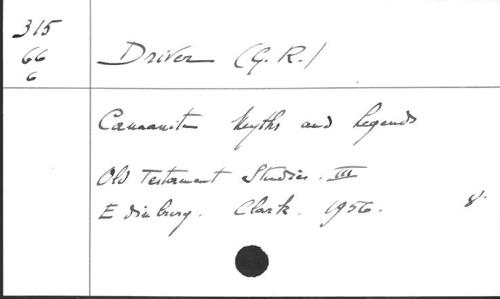 315
66
6
Driver (G. R.)
Canaanite Myths and Legends
Old Testament Studies. III
Edinburg. Clark. 1956. 8°